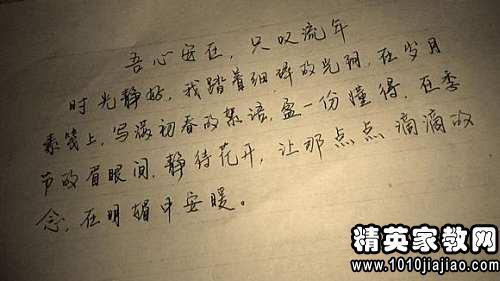 吾心安在,只叹流年
时光静好,我踏着细碎的光阴,在岁月
素笺上,写满初春的絮语,盈一份懂得,在季
节的眉眼间,静待花开,让那点点滴滴的
念,在明媚中安暖。
精英家教网
www.1010jiajiao.com